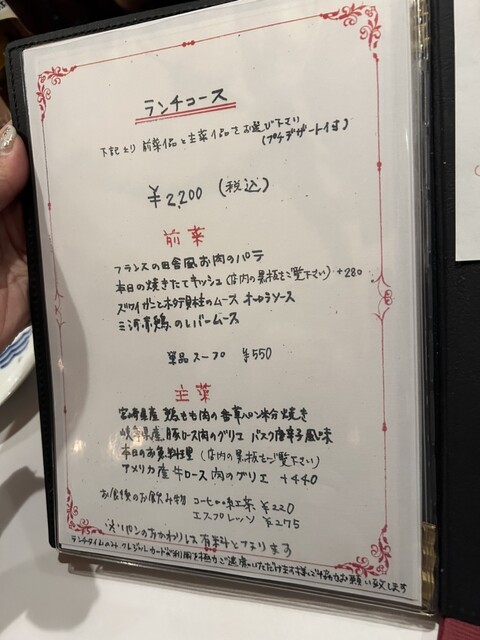 ランチコース
下記より 前菜1品と主菜1品をお選び下さい
(プチデザート付)
¥2,200 (税込)
前菜
フランスの田舎風お肉のパテ
本日の焼きたてキッシュ (店内の黒板をご覧下さい) +280
ズワイガニとホタテ貝柱のムース オーロラソース
三河赤鶏のレバームース
単品スープ ¥550
主菜
宮崎県産 鶏もも肉の香草パン粉焼き
岐阜県産 豚ロース肉のグリエ バスク唐辛子風味
本日のお魚料理 (店内の黒板をご覧下さい)
アメリカ産牛ロース肉のグリエ +440
お食後のお飲み物 コーヒーor紅茶 ¥220
エスプレッソ ¥275
※パンのおかわりは有料となります
ランチタイムはクレジットカードの利用を極力ご遠慮いただけます様、ご協力お願い致します